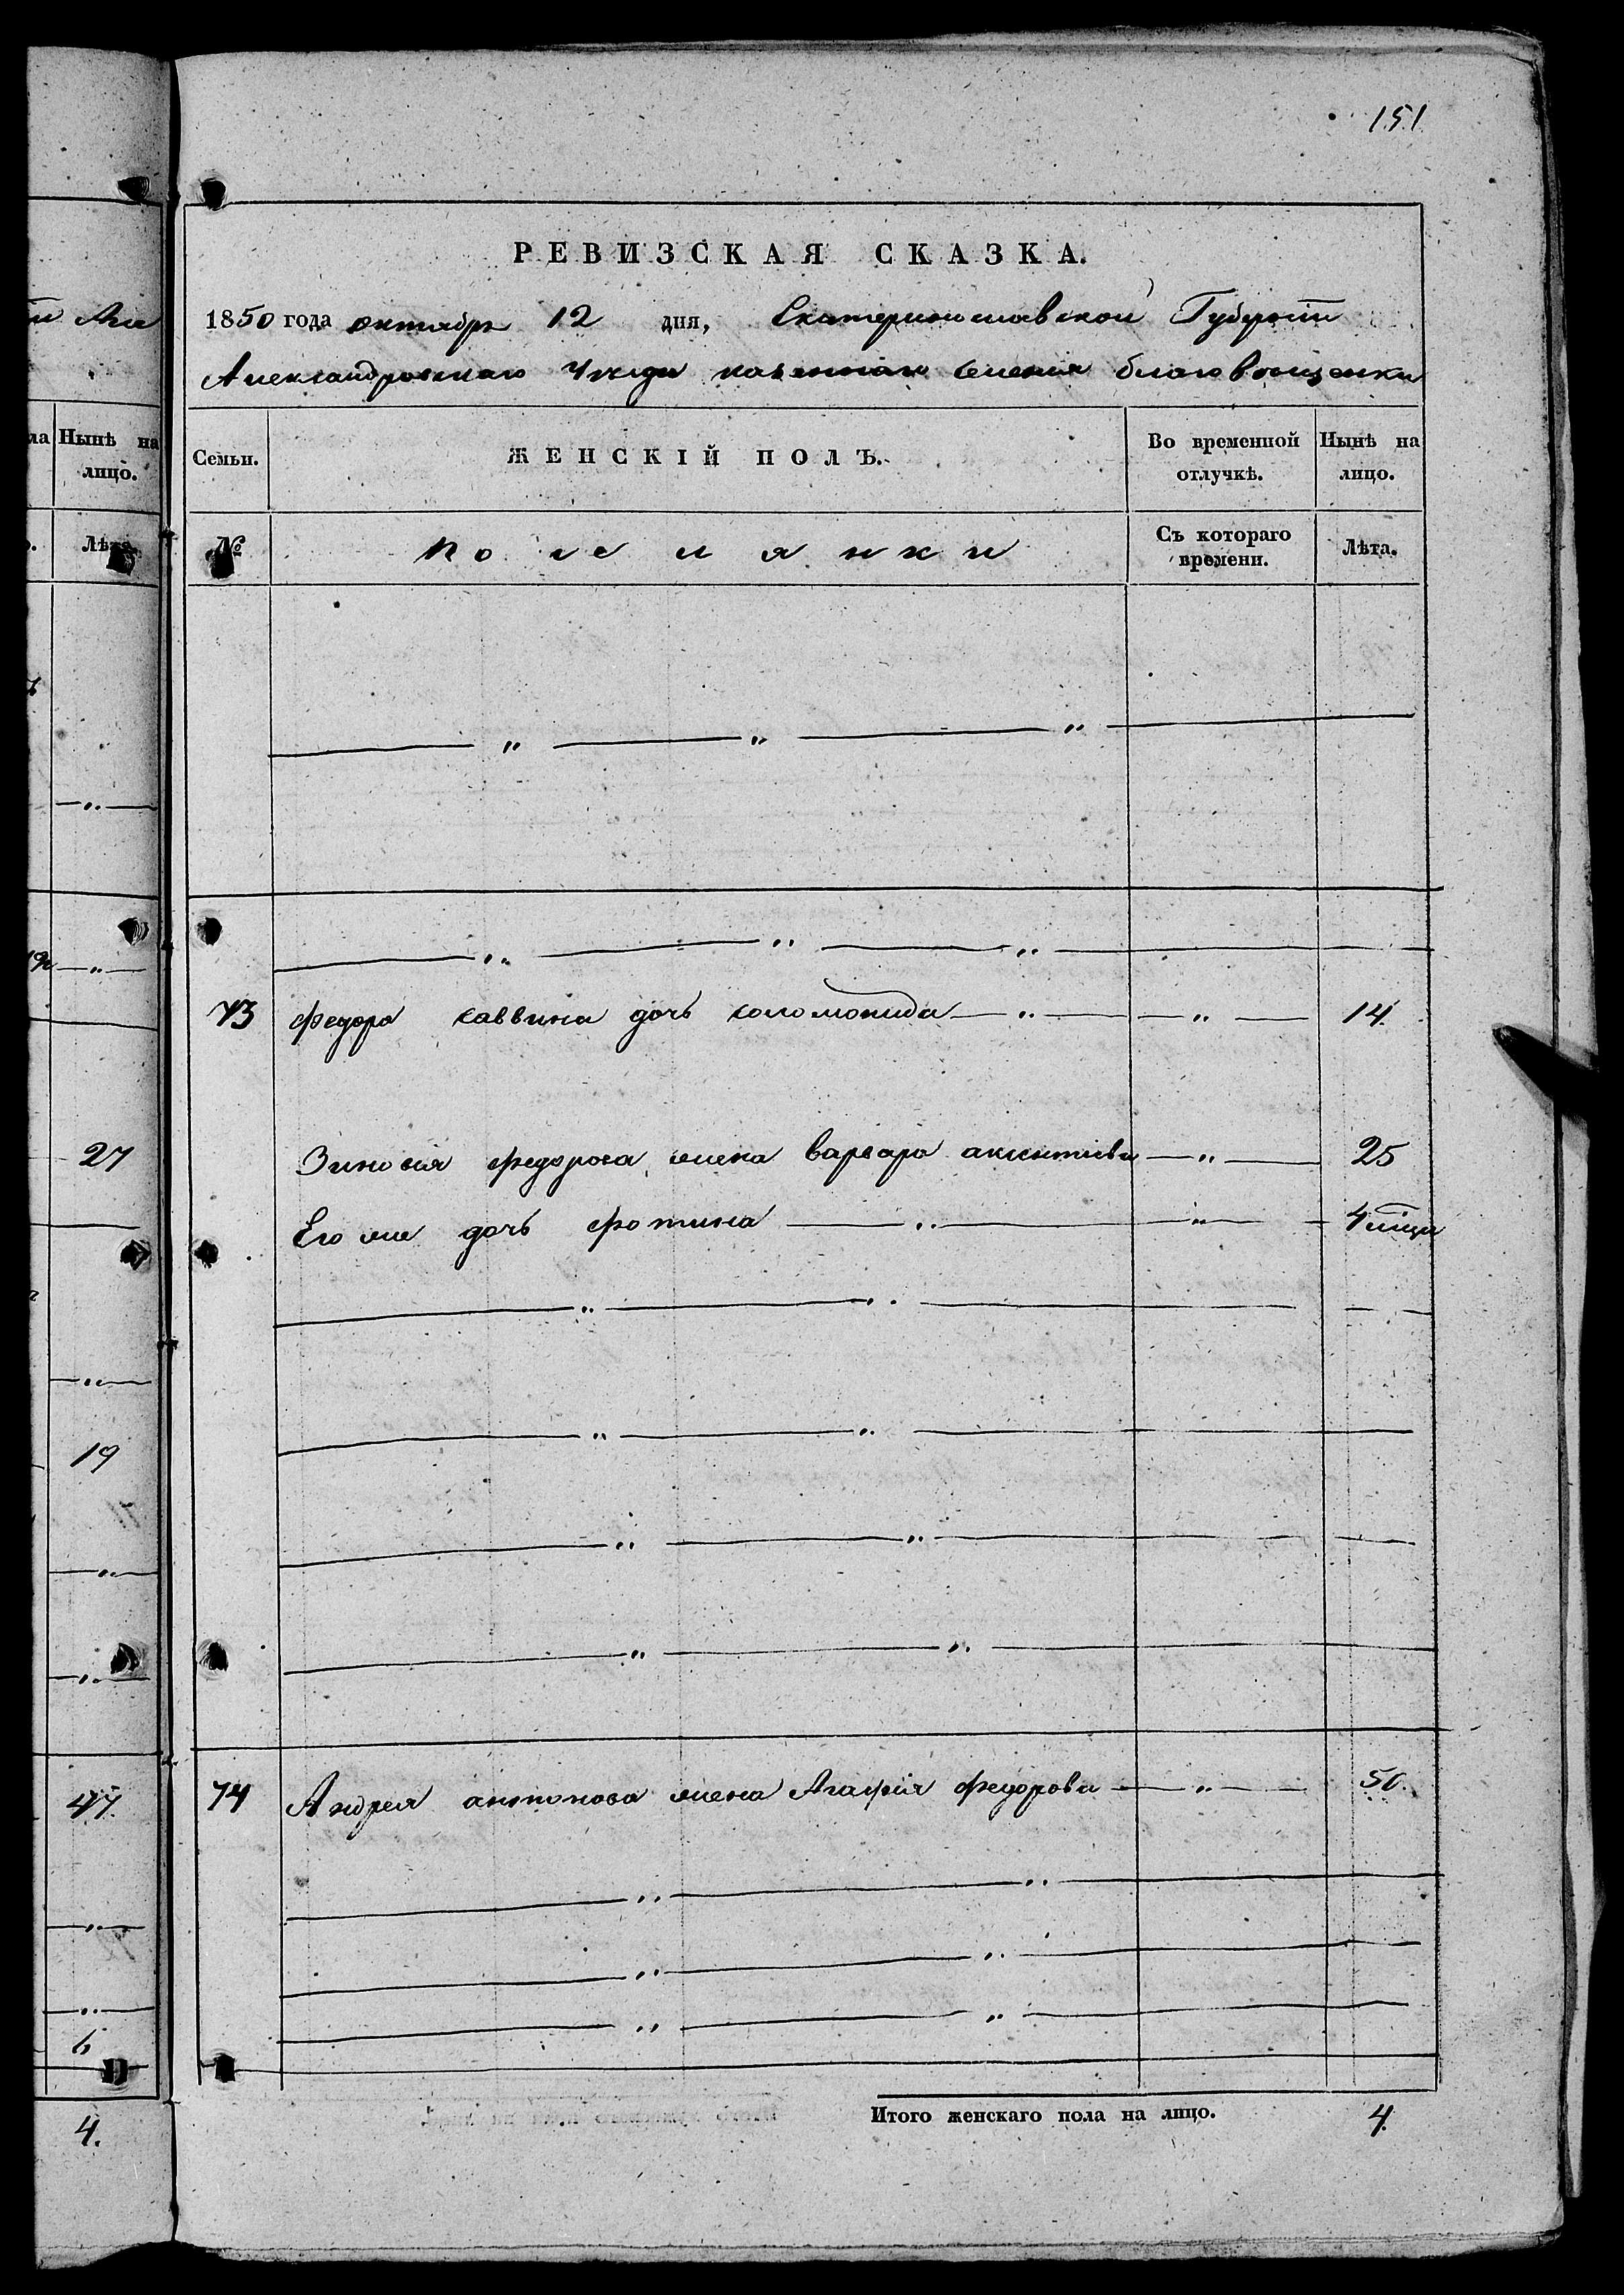 151
РЕВИЗСКАЯ СКАЗКА.
1850 года октября 12 дня, Екатеринославской Губерніи
Александровскаго Уезда казеннаго селенія благовещенки
Семьи. ЖЕНСКІЙ ПОЛЪ. Во временной отлучкѣ. Нынѣ на лицо.
№ поселянки Съ котораго времени. Лѣта.
73 федора саввина дочь соломонида — „ — — „ — 14.
Зиновия федорова жена варвара аксентиева — „ — 25
Его же дочь фотина — „ — „ — 4 мѣца
74 Андрея антонова жена Агафія федорова — „ — 50.
Итого женскаго пола на лицо. 4.
Нынѣ на лицо.
Лѣта.
27
19
47.
6
4.